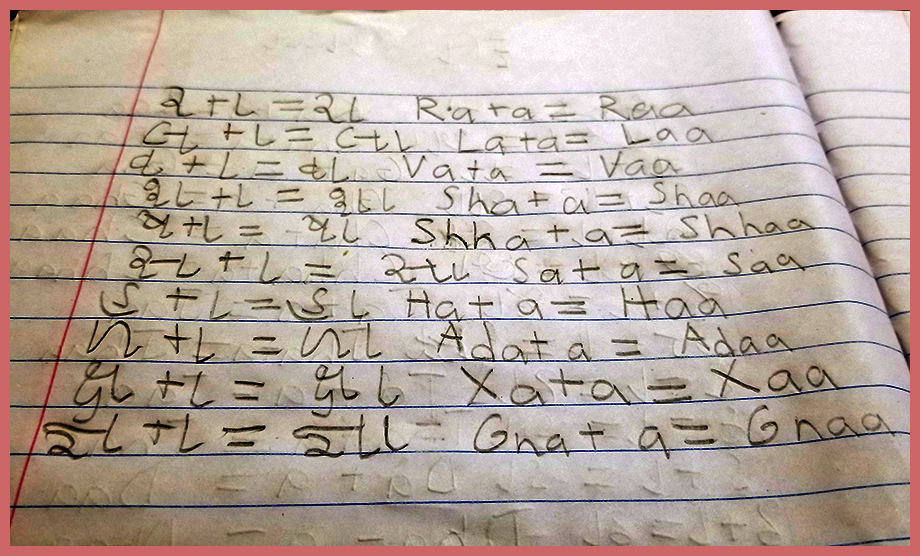 ર + ા = રા Ra + a = Raa
લ + ા = લા La + a = Laa
વ + ા = વા Va + a = Vaa
શ + ા = શા Sha + a = Shaa
ષ + ા = ષા Shha + a = Shhaa
સ + ા = સા Sa + a = Saa
હ + ા = હા Ha + a = Haa
ળ + ા = ળા Ada + a = Adaa
ક્ષ + ા = ક્ષા Xa + a = Xaa
જ્ઞ + ા = જ્ઞા Gna + a = Gnaa